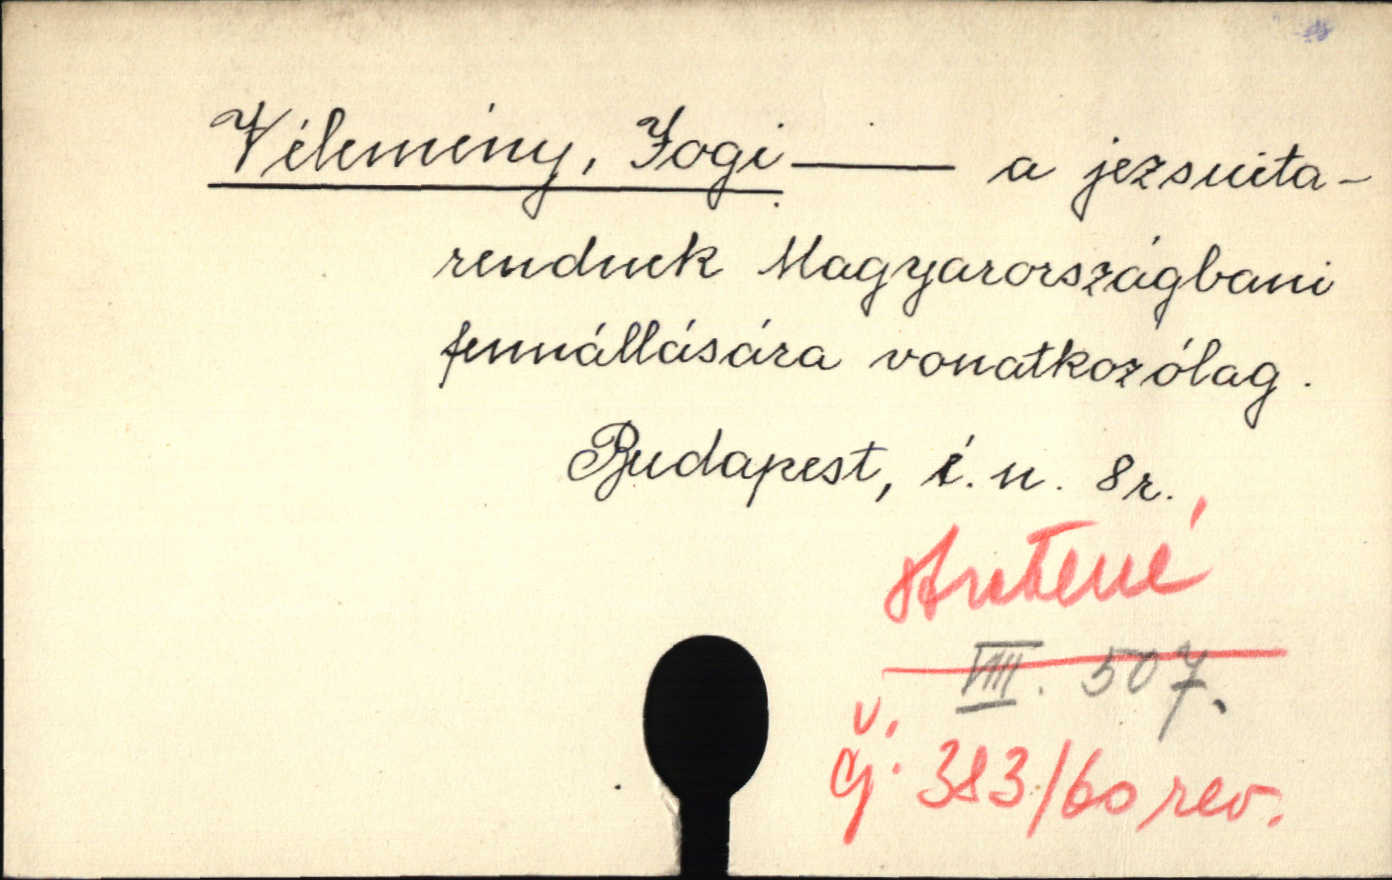 Vélemény, Jogi —— a jezsuita-
rendnek Magyarországbani
fennállására vonatkozólag.
Budapest, é. n. 8r.
stratené
VIII. 507.
čj. 383/60 rev.